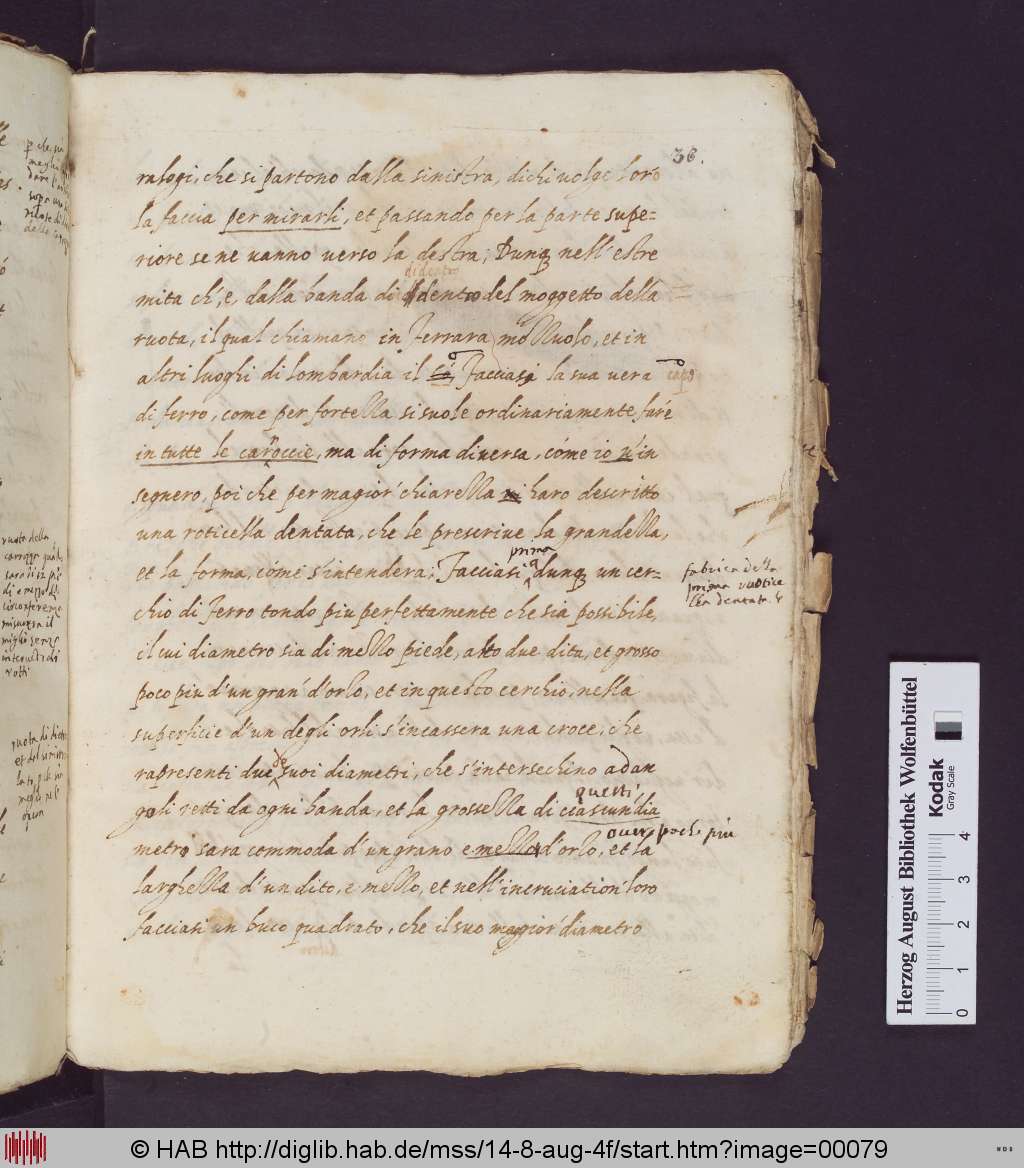 36.
ralogi, che si partono dalla sinistra, di chi volge loro
la faccia per mirarli, et passando per la parte supe=
riore se ne vanno verso la destra; Dunq nell'estre
di dentro
mita ch'e, dalla banda di dentro del moggetto della
ruota, il qual chiamano in Ferrara mollvolo, et in
altri luoghi di lombardia il Facciasi la sua vera
capo
di ferro, come per fortezza si suole ordinariamente fare
in tutte le caroccie, ma di forma diversa, cóme io v'in
segnero, poi che per magior' chiarezza haro descritto
una roticella dentata, che le prescrive la grandezza,
prima
et la forma, cóme s'intendera; Facciasi dunq un cer=
chio di Ferro tondo piu perfettamente che sia possibile,
il cui diametro sia di mezzo piede, alto due dita, et grosso
poco piu d'un gran' d'orzo, et in questo cerchio, nella
superficie d'un degli orli s'incassera una croce, che
de
rapresenti due suoi diametri, che s'intersechino ad an
questi
goli retti da ogni banda, et la grossezza di ciascun' dia
over poch. più
metro sara commoda d'un grano e mezzo d'orzo, et la
larghezza d'un dito, e mezzo, et nell'incruciation' loro
facciasi un buco quadrato, che il suo maggior' diametro
fabrica della
prima ruotice
lla dentata
ruota della
sara di un pie
circonferenza
misurera il
miglio senza
rotti
ruota di dietro
© HAB http://diglib.hab.de/mss/14-8-aug-4f/start.htm?image=00079
Herzog August Bibliothek Wolfenbüttel
Kodak
Gray Scale
0 1 2 3 4